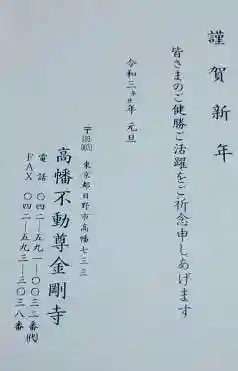 謹賀新年
皆さまのご健勝ご活躍をご祈念申しあげます
令和三年 元旦
東京都日野市高幡七三三
高幡不動尊金剛寺
電話 〇四二―五九一―〇〇三二番(代)
FAX 〇四二―五九三―三〇三八番